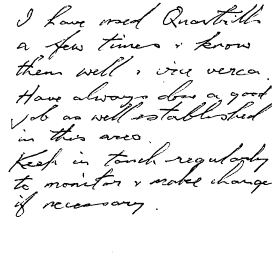 I have used Quantrills
a few times & know
them well & vice verca.
Have always done a good
job as well established
in this area.
Keep in touch regularly
to monitor & make change
if necessary.